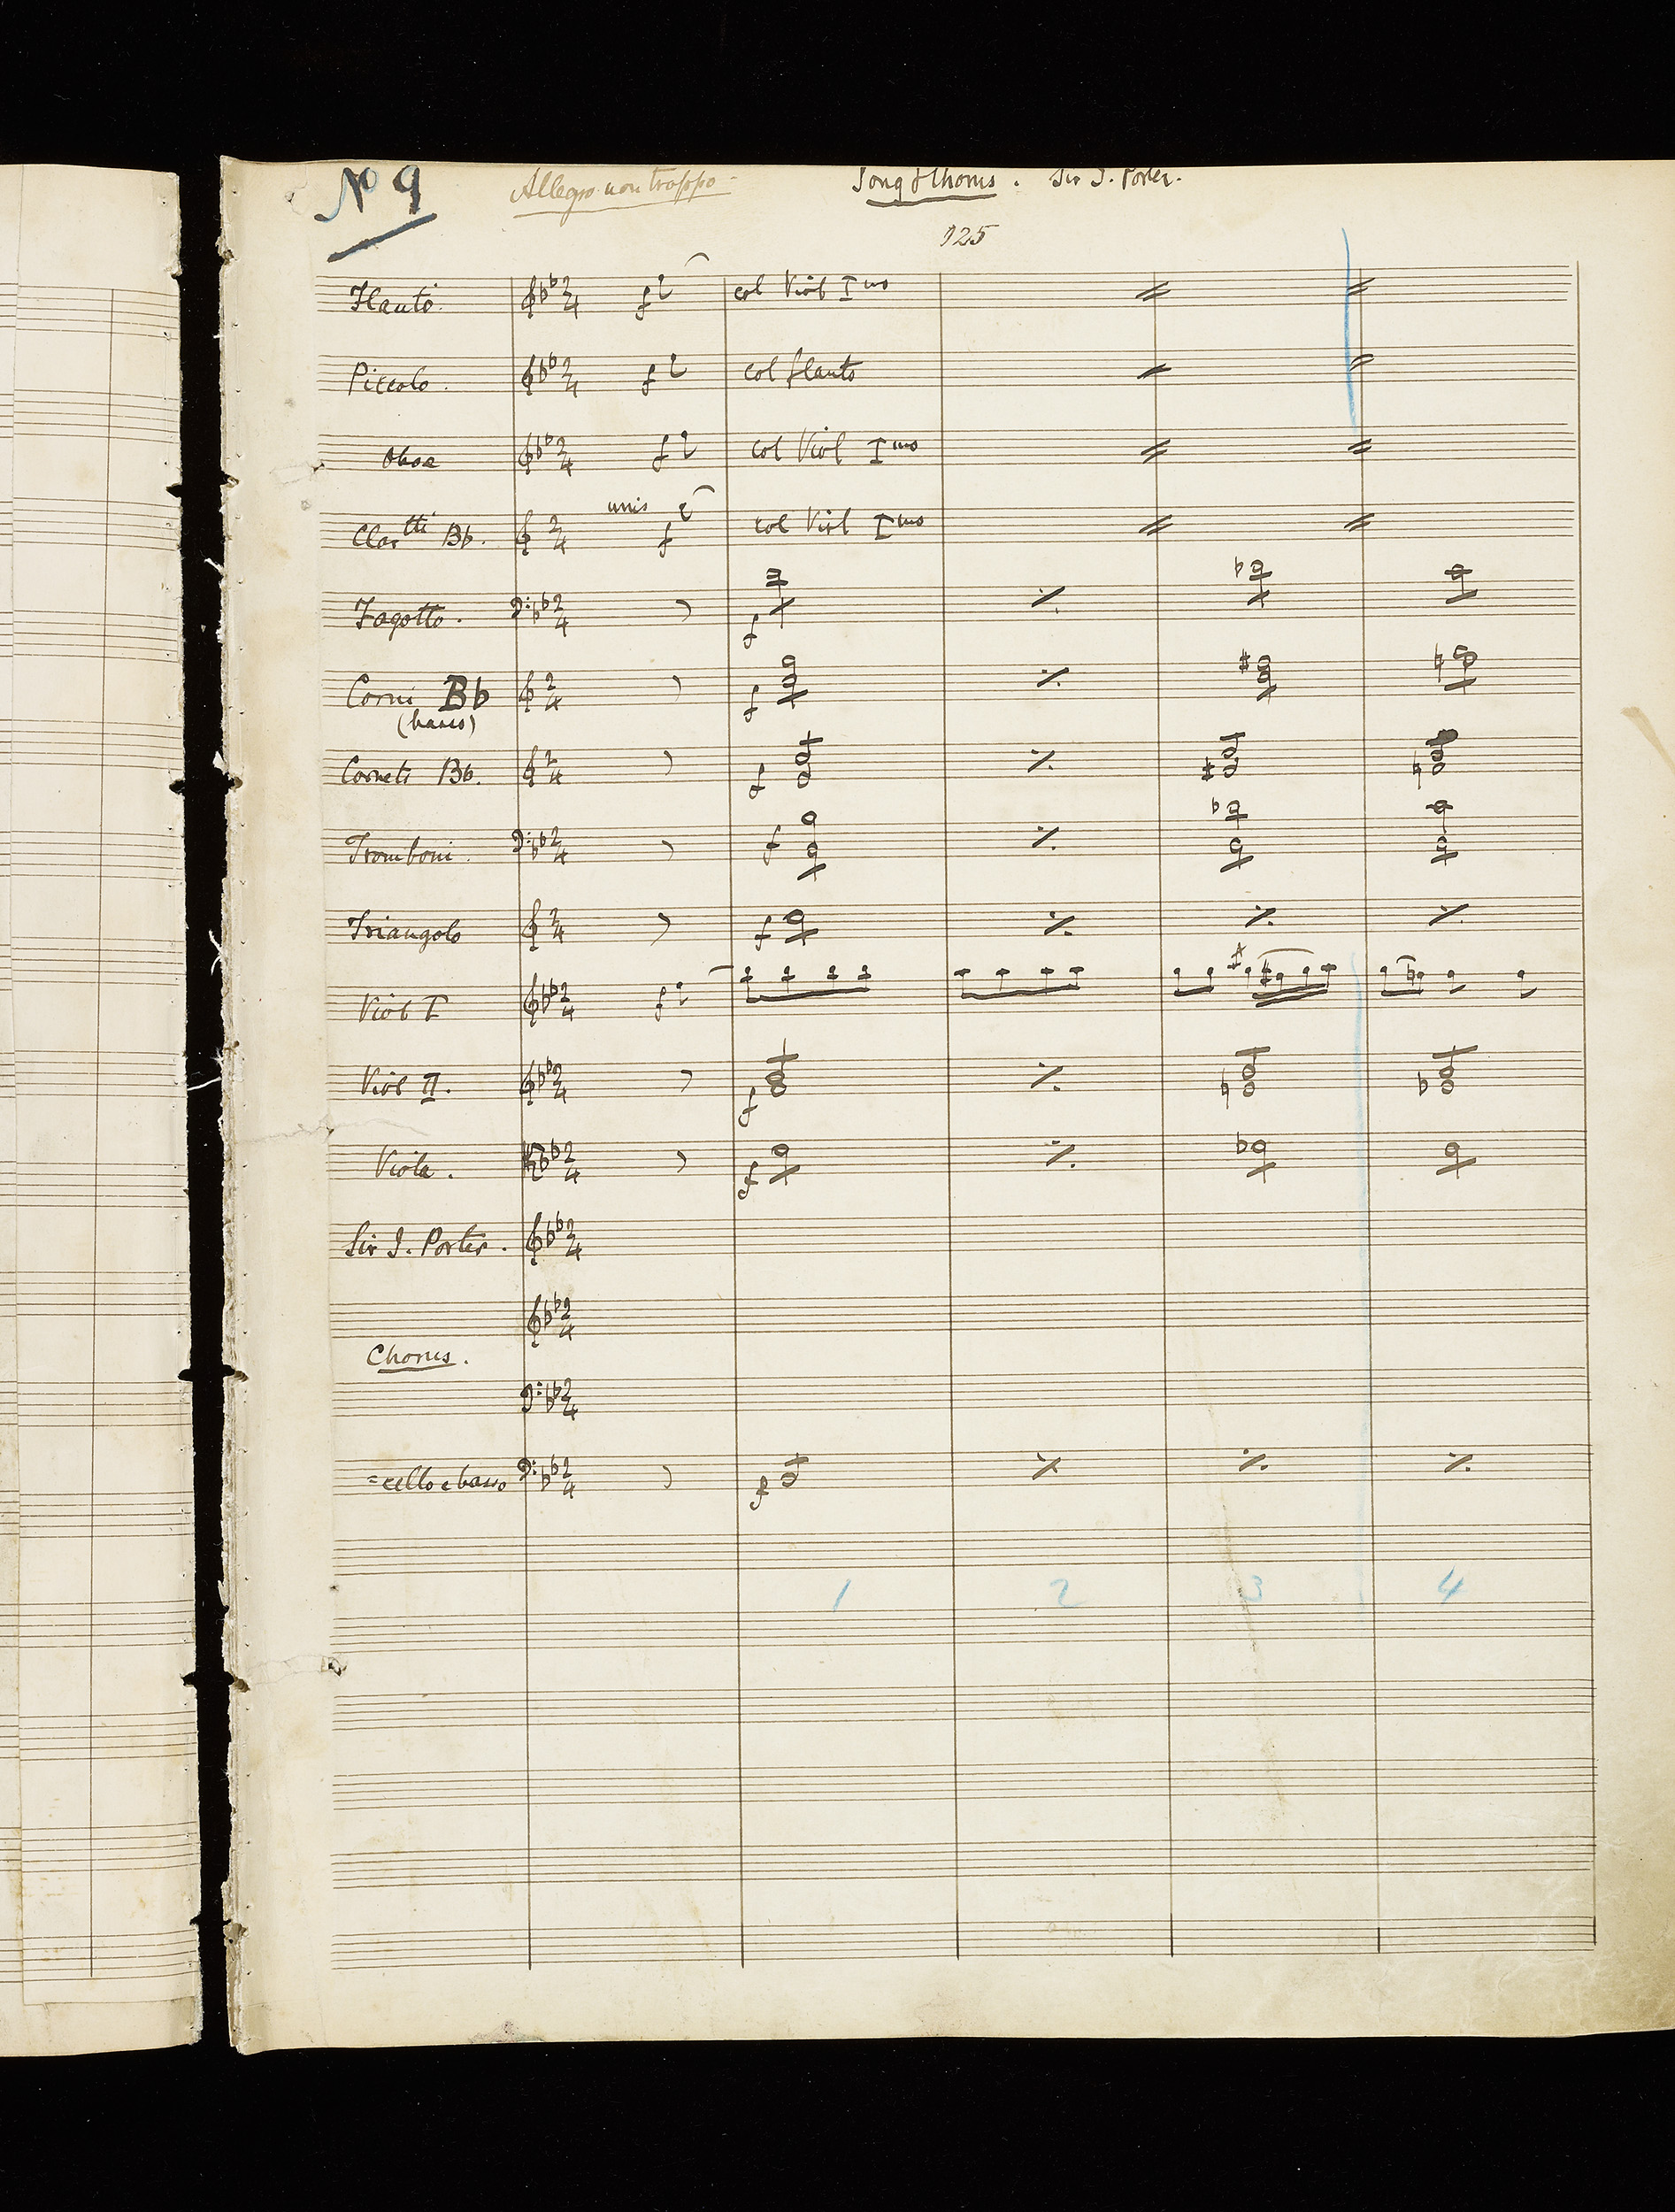 No 9 Allegro non troppo Song & Chorus. Sir J. Porter.
125
Flauto. 2 4 f col Viol Imo
Piccolo. 2 4 f col flauto
Oboe 2 4 f col Viol Imo
Clartti Bb. 2 4 unis f col Viol Imo
Fagotto. 2 4 f
Corni Bb 2 4 f
(basso)
Cornets Bb. 2 4 f
Tromboni. 2 4 f
Triangolo 2 4 f
Viol I 2 4 f
Viol II. 2 4 f
Viola. 2 4 f
Sir J. Porter. 2 4
2 4
Chorus.
2 4
=cello e basso 2 4 f
1 2 3 4